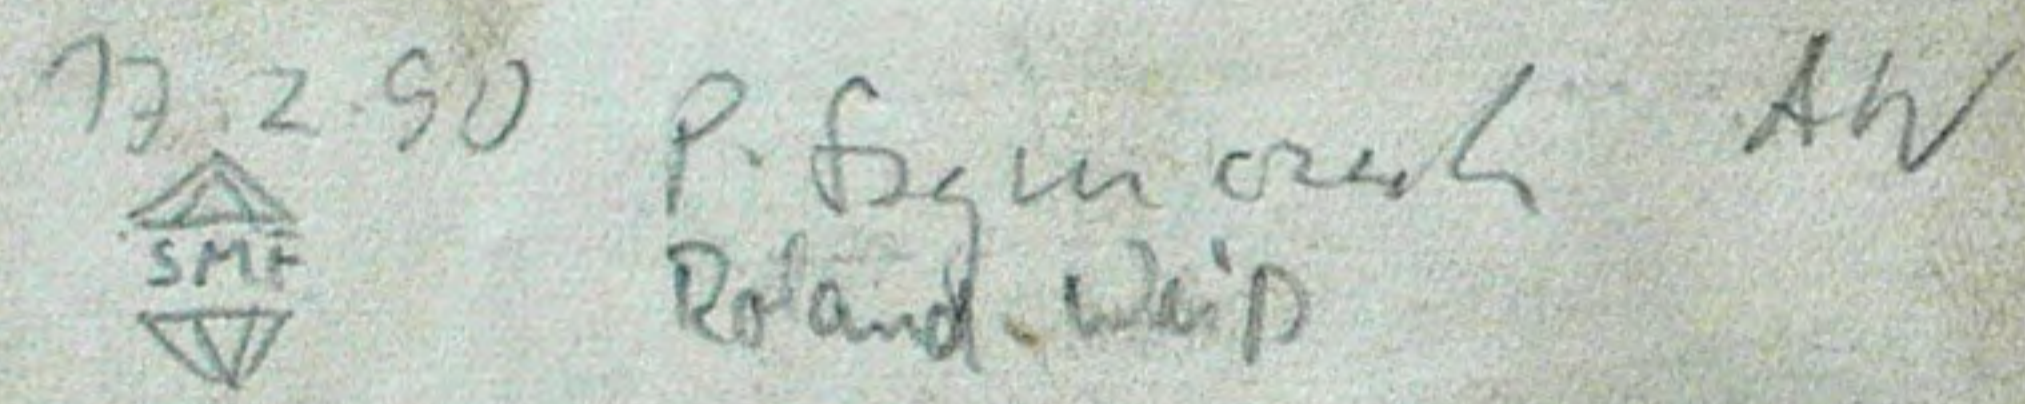 17.2.90 P. Szymczak AW
SMF
Roland Weiß